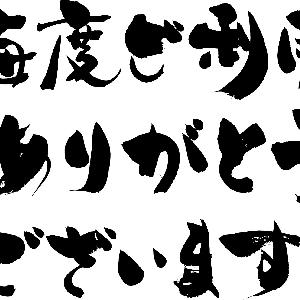 毎度ご利用
ありがとう
ございます